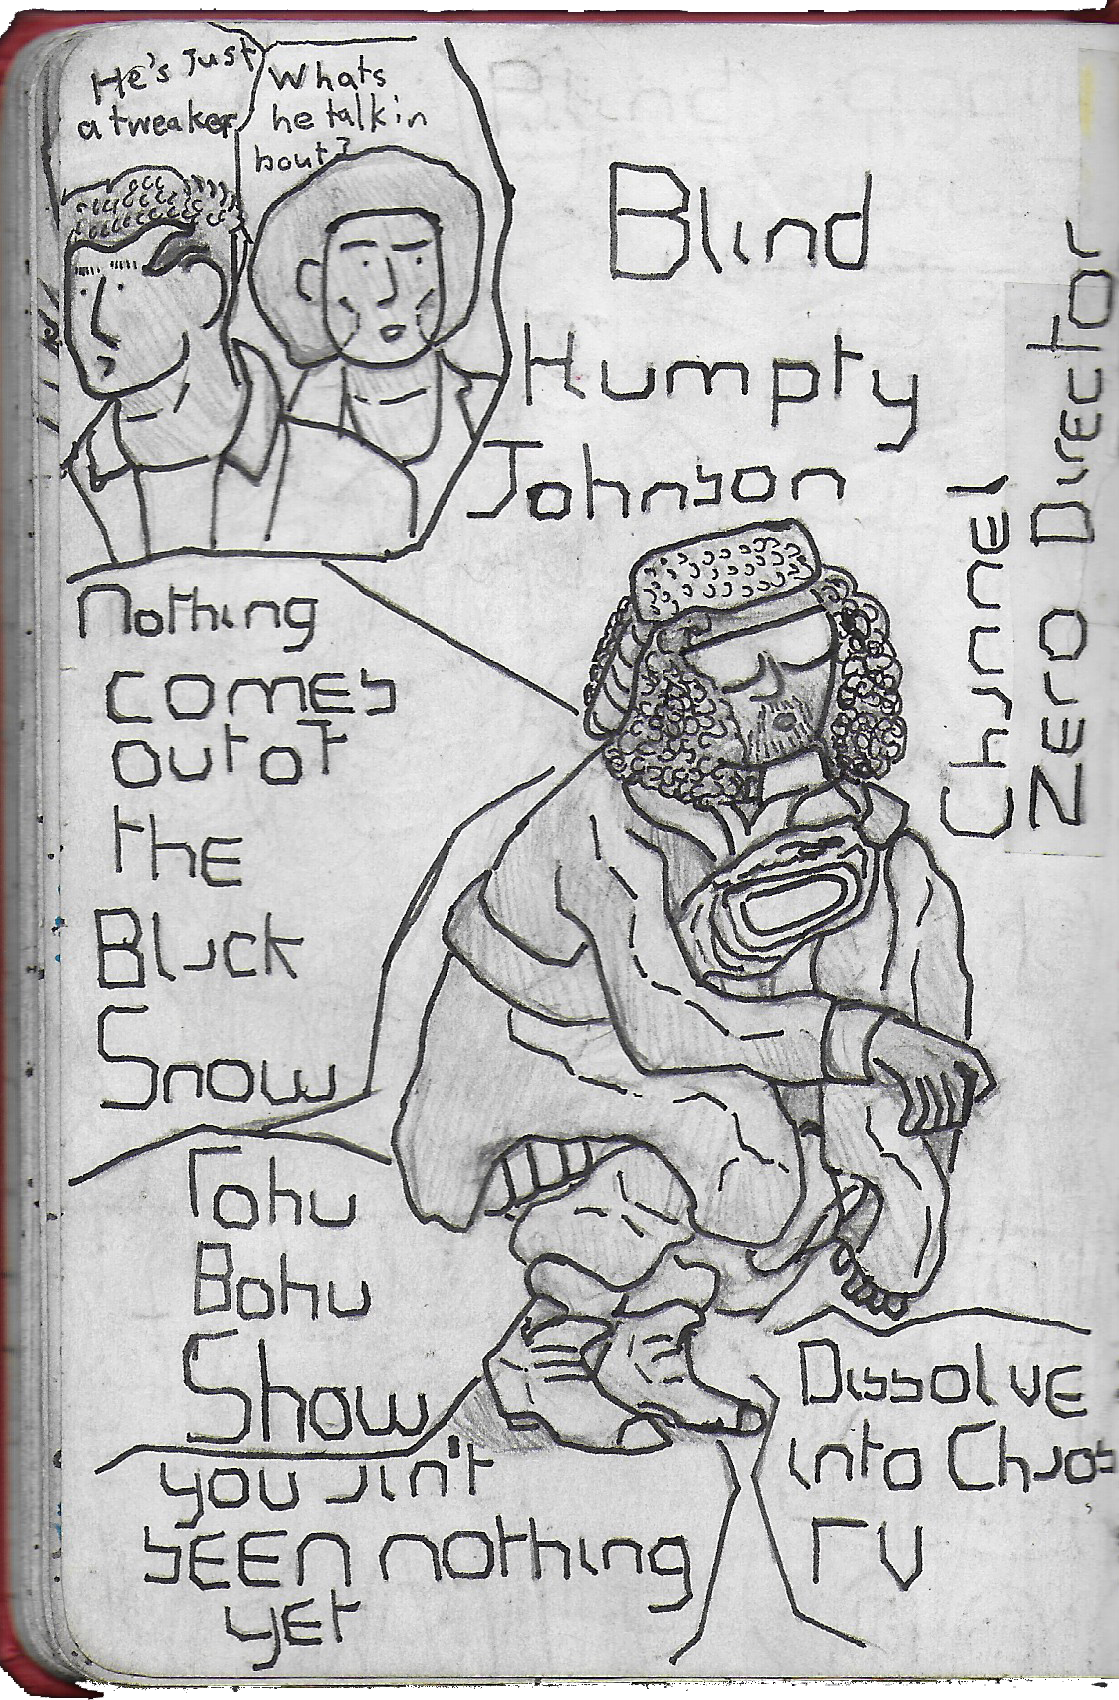 He's Just
a tweaker
Whats
he talkin
bout?
Blind
Humpty
Johnson
Channel
Zero Director
Nothing
comes
out of
the
Black
Snow
Tohu
Bohu
Show
you ain't
seen nothing
yet
Dissolve
into Chaos
TV